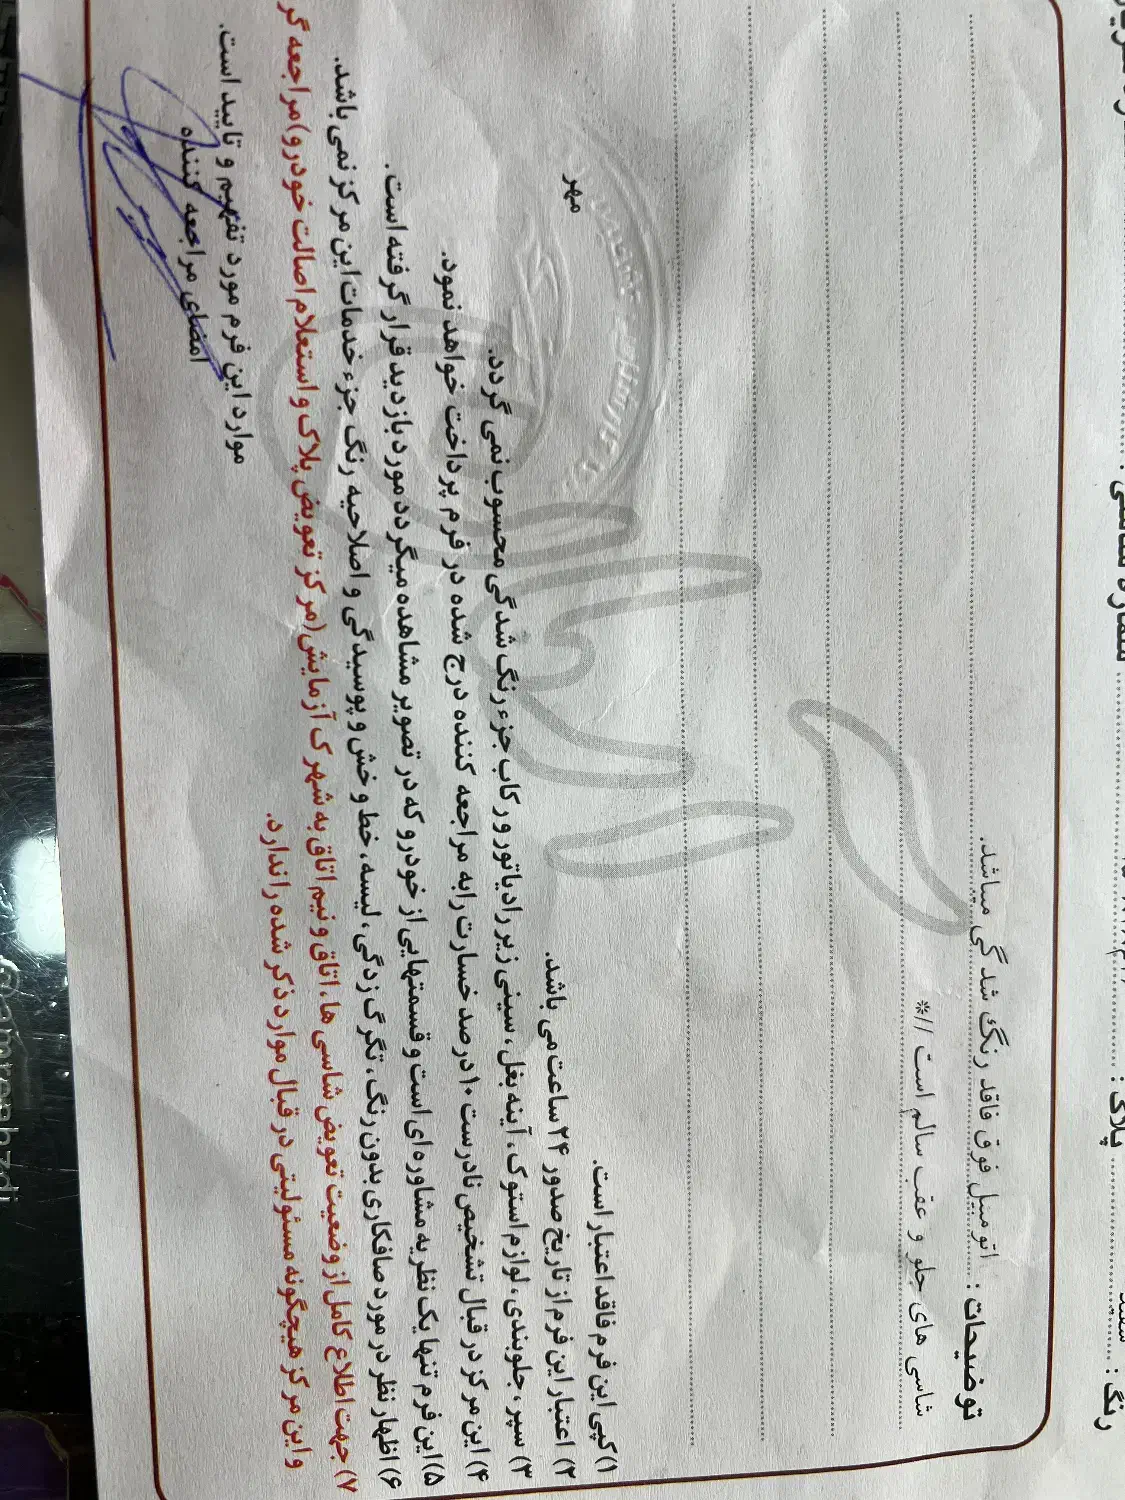 رنگ : سفید پلاک :
توضیحات : اتومبیل فوق فاقد رنگ شدگی میباشد.
شاسی های جلو و عقب سالم است //*
۱) کپی این فرم فاقد اعتبار است.
۲) اعتبار این فرم از تاریخ صدور ۲۴ ساعت می باشد.
۳) سپر، جلوبندی، لوازم استوک، آینه بغل، سینی زیر رادیاتور و رکاب جزء رنگ شدگی محسوب نمی گردد.
۴) این مرکز در قبال تشخیص نادرست ۱۰ درصد خسارت را به مراجعه کننده درج شده در فرم پرداخت خواهد نمود.
۵) این فرم تنها یک نظریه مشاوره ای است و قسمتهایی از خودرو که در تصویر مشاهده میگردد مورد بازدید قرار گرفته است.
۶) اظهار نظر در مورد صافکاری بدون رنگ، تگرگ زدگی، لیسه، خط و خش و پوسیدگی و اصلاحیه رنگ جزء خدمات این مرکز نمی باشد.
۷) جهت اطلاع کامل از وضعیت تعویض شاسی ها، اتاق و نیم اتاق به شهرک آزمایش (مرکز تعویض پلاک و استعلام اصالت خودرو) مراجعه گر
و این مرکز هیچگونه مسئولیتی در قبال موارد ذکر شده را ندارد.
مهر
موارد این فرم مورد تفهیم و تایید است.
امضای مراجعه کننده